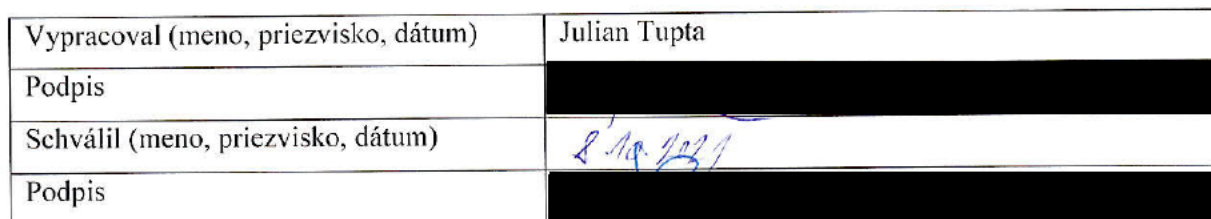 Vypracoval (meno, priezvisko, dátum) Julian Tupta
Podpis
Schválil (meno, priezvisko, dátum)
Podpis